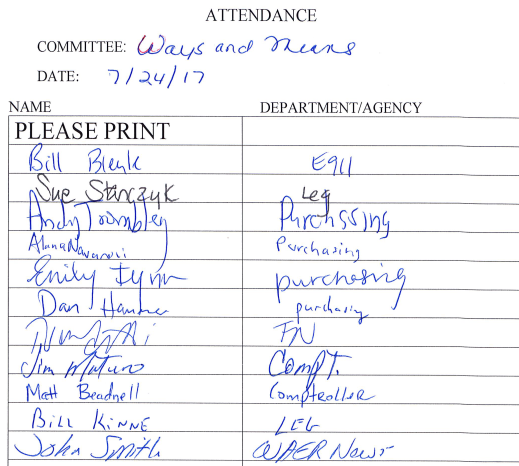 ATTENDANCE
COMMITTEE: Ways and Means
DATE: 7/24/17
NAME DEPARTMENT/AGENCY
PLEASE PRINT
Bill Bleyle E911
Sue Stanczyk Leg
Andy Trombley Purchasing
Purchasing
Emily purchasing
Dan Hammer purchasing
FN
Jim Maturo Compt.
Matt Beadnell Comptroller
BILL KINNE LEG
John Smith WAER News